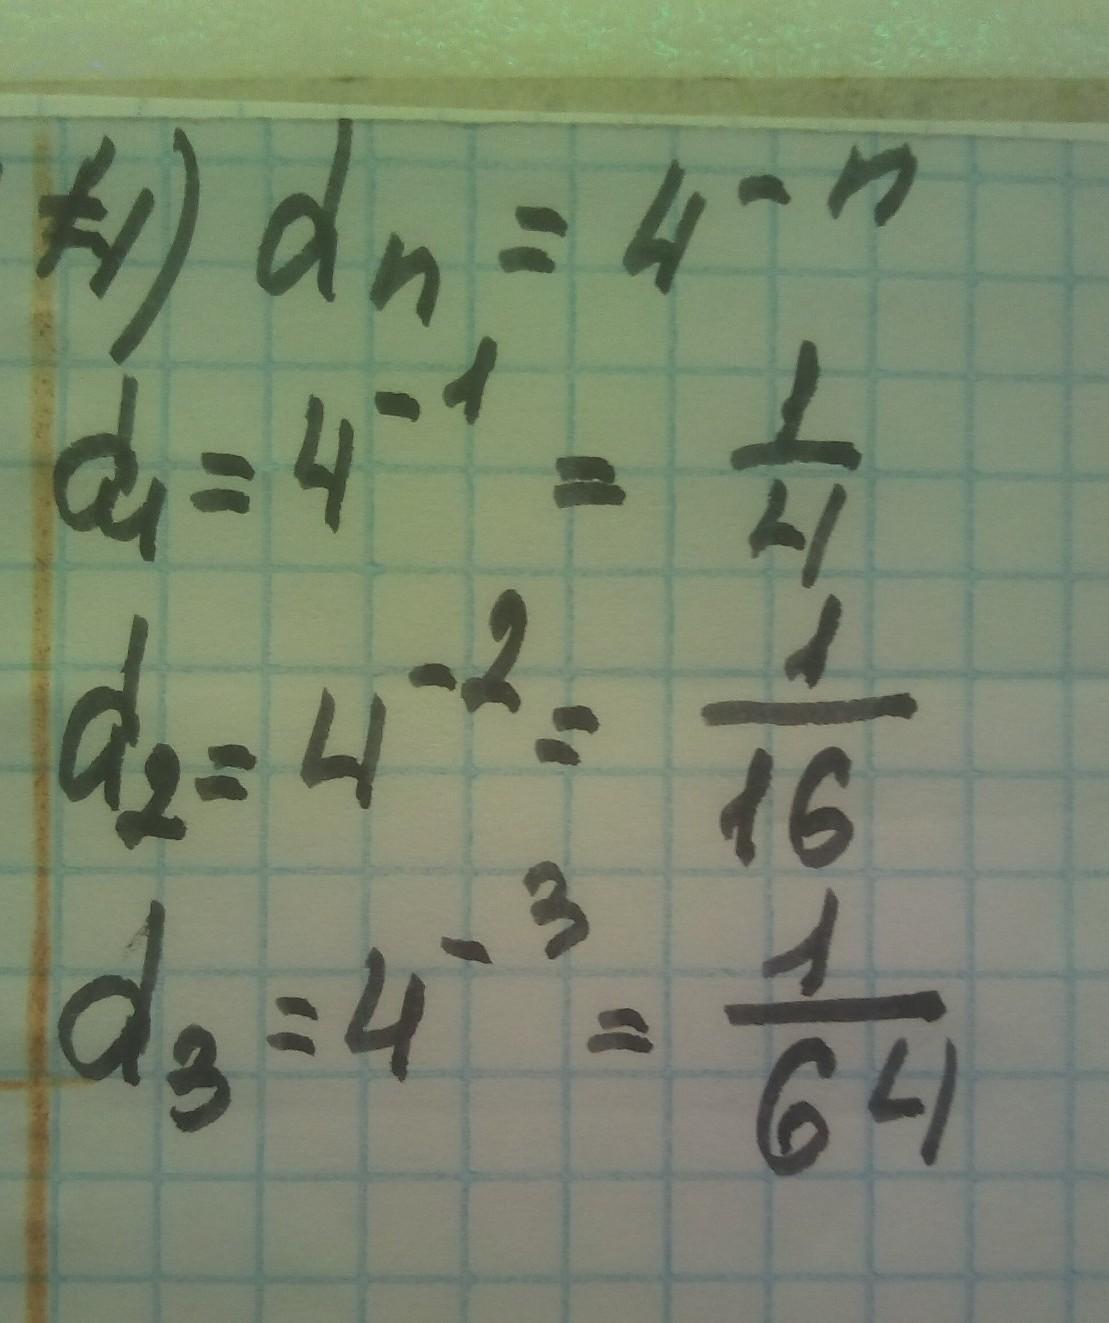 4) dₙ = 4⁻ⁿ
d₁ = 4⁻¹ = 1/4
d₂ = 4⁻² = 1/16
d₃ = 4⁻³ = 1/64